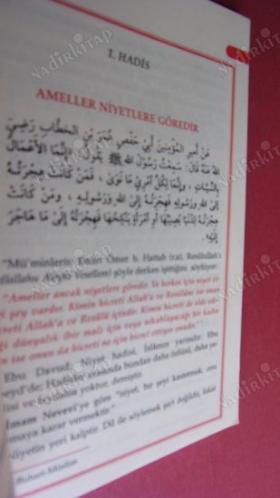 1. HADİS
AMELLER NİYETLERE GÖREDİR
عَنْ أَمِيرِ الْمُؤْمِنِينَ أَبِي حَفْصٍ عُمَرَ بْنِ الْخَطَّابِ رَضِيَ
اللهُ عَنْهُ قَالَ: سَمِعْتُ رَسُولَ اللهِ ﷺ يَقُولُ: إِنَّمَا الْأَعْمَالُ
بِالنِّيَّاتِ، وَإِنَّمَا لِكُلِّ امْرِئٍ مَا نَوَى، فَمَنْ كَانَتْ هِجْرَتُهُ
إِلَى اللهِ وَرَسُولِهِ فَهِجْرَتُهُ إِلَى اللهِ وَرَسُولِهِ، وَمَنْ كَانَتْ
هِجْرَتُهُ لِدُنْيَا يُصِيبُهَا أَوِ امْرَأَةٍ يَنْكِحُهَا فَهِجْرَتُهُ إِلَى مَا هَاجَرَ
إِلَيْهِ.
"Mü'minlerin Emiri Ömer b. Hattab (r.a), Resûlullah'ı
(sallallahu Aleyhi Vesellem) şöyle derken işittiğini söylüyor:
"Ameller ancak niyetlere göredir. Ve herkes için niyet
şey vardır. Kimin hicreti Allah'a ve Resûlüne ise onun
hicreti Allah'a ve Resûlü içindir. Kimin hicreti de elde
dünyalık (bir mal) için veya nikâhlayacağı bir kadın
ise onun da hicreti ne için hicret ettiyse onadır."
Ebu Davud; Niyet hadisi, İslâmın yarısıdır. Ebu
Hadisler arasında bundan daha özlüsü, daha
ve faydalısı yoktur, demiştir.
İmam Nevevî'ye göre "niyet, bir şeyi kastetmek, onu
yapmaya karar vermektir."
Niyetin yeri kalptir. Dil ile söylemek şart değildir,